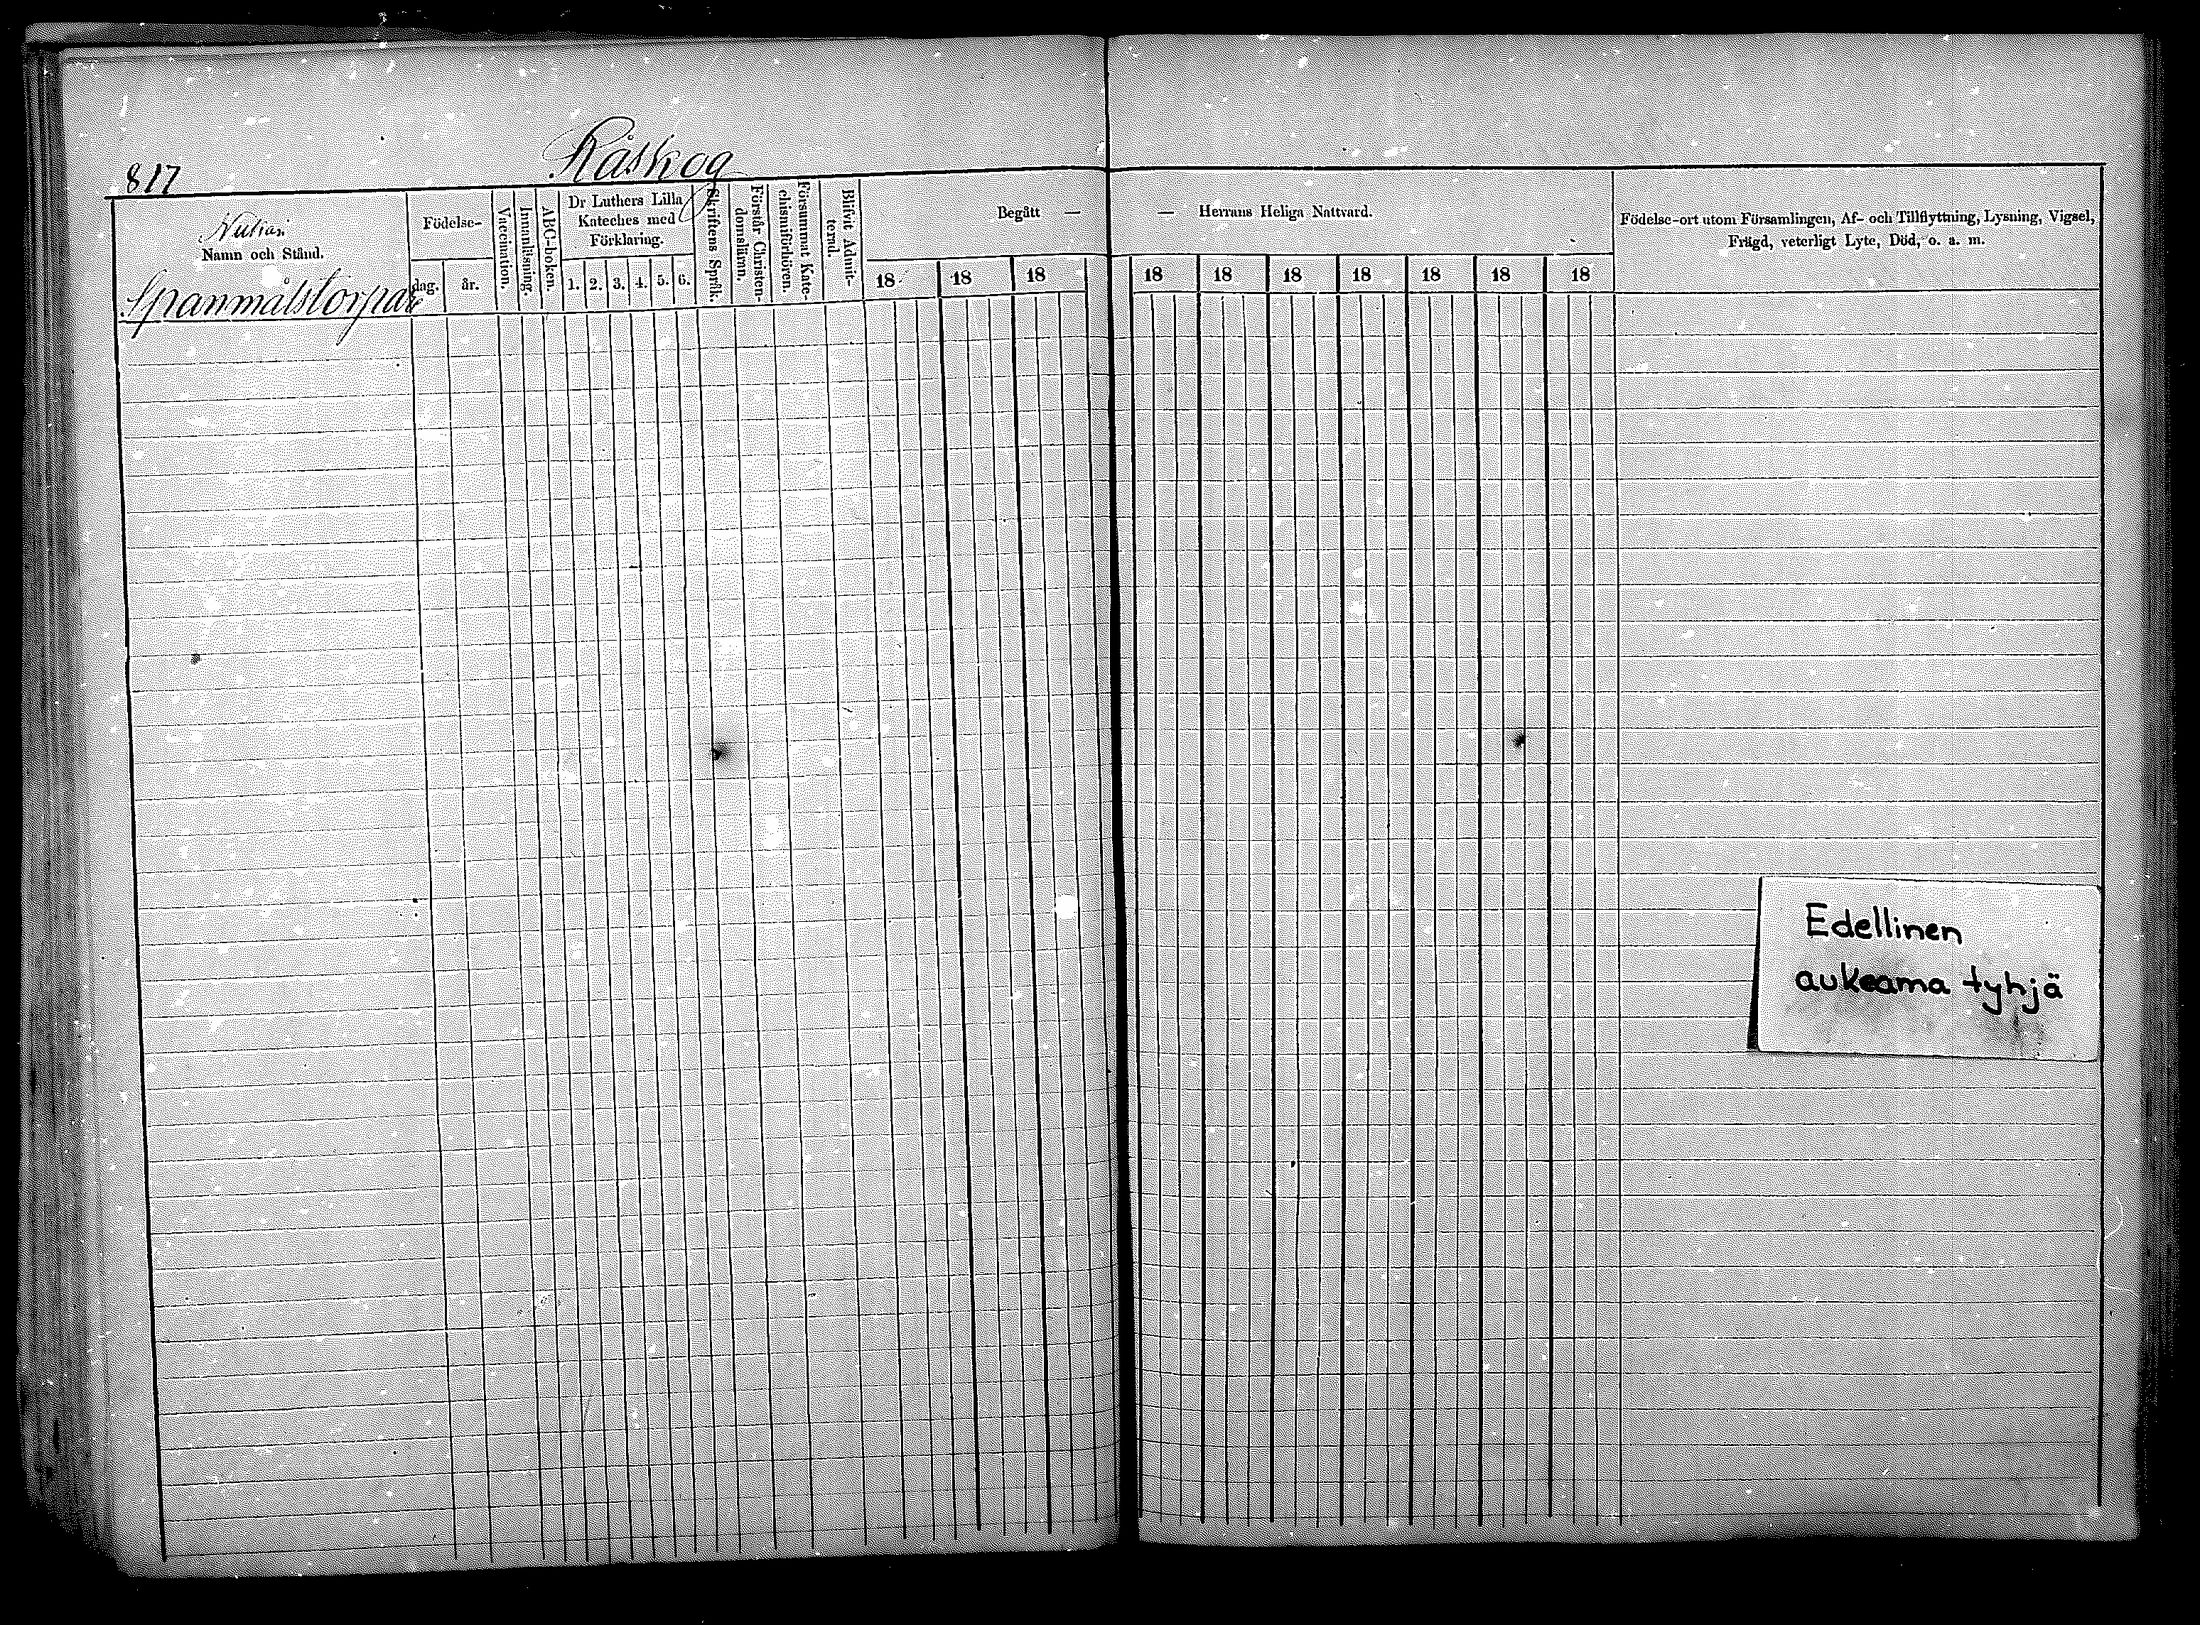 817
Råskog
Dr Luthers Lilla
Kateches med
Förklaring.
Namn och Stånd.
Födelse-
dag.
år.
Vaccination.
Innanläsning.
ABC-boken.
1. 2. 3. 4. 5. 6.
Skriftens Språk.
Förstår Christen-
domslämn.
Försummat Kate-
chismiförhören.
Blifvit Admit-
terad.
Begått —
18 18 18
Spanmålstorpare
— Herrans Heliga Nattvard.
18 18 18 18 18 18 18
Födelse-ort utom Församlingen, Af- och Tillflyttning, Lysning, Vigsel,
Frägd, veterligt Lyte, Död, o. a. m.
Edellinen
aukeama tyhjä